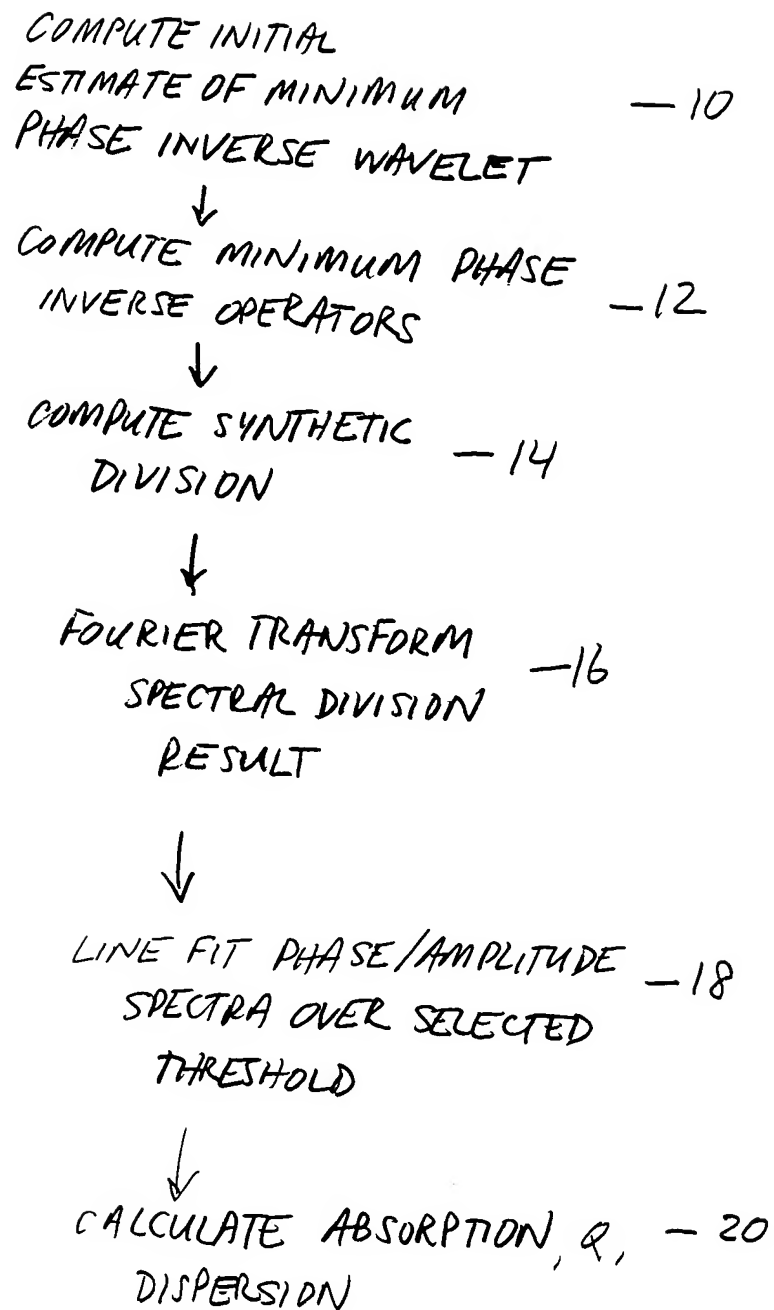 COMPUTE INITIAL
ESTIMATE OF MINIMUM — 10
PHASE INVERSE WAVELET
↓
COMPUTE MINIMUM PHASE
INVERSE OPERATORS — 12
↓
COMPUTE SYNTHETIC — 14
DIVISION
↓
FOURIER TRANSFORM — 16
SPECTRAL DIVISION
RESULT
↓
LINE FIT PHASE/AMPLITUDE — 18
SPECTRA OVER SELECTED
THRESHOLD
↓
CALCULATE ABSORPTION, Q, — 20
DISPERSION